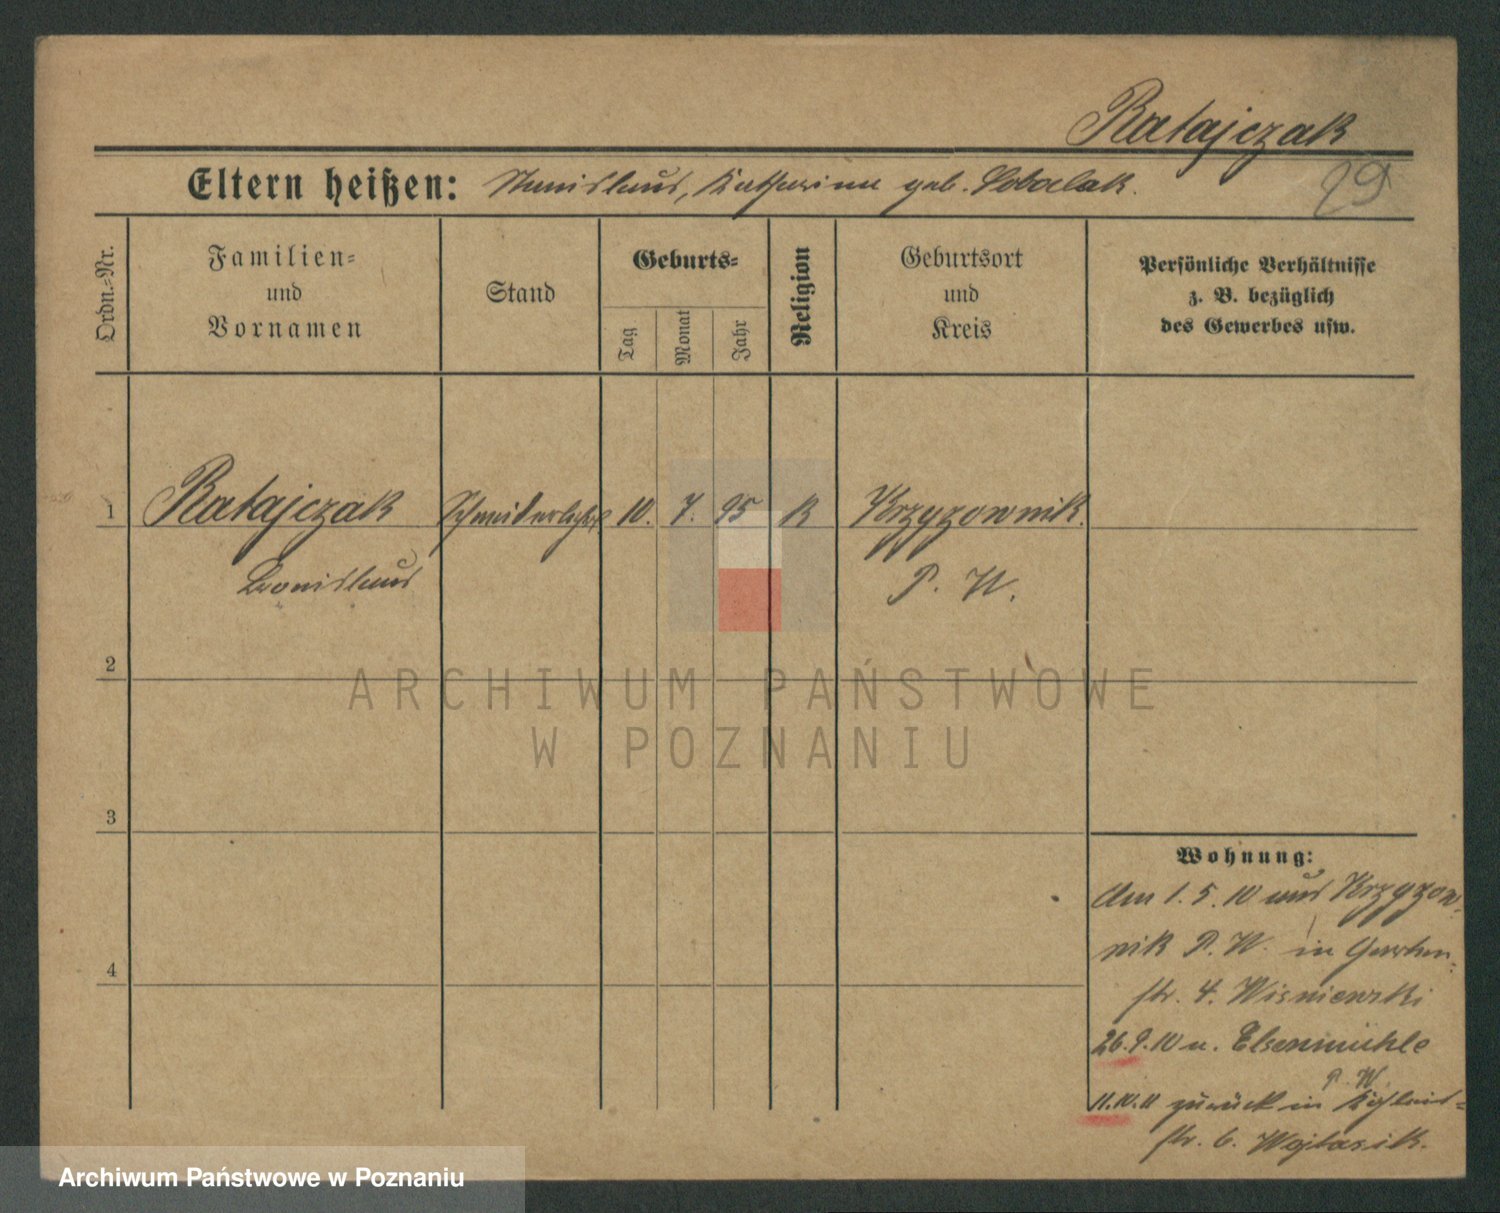 Ratajczak
Eltern heißen: Stanislaus, Katharina geb. Sobcalak.
29
Ordn.-Nr.
Familien-
und
Vornamen
Stand
Geburts-
Tag
Monat
Jahr
Religion
Geburtsort
und
Kreis
Persönliche Verhältnisse
z. B. bezüglich
des Gewerbes usw.
1 Ratajczak Schneiderlehrl 10. 7. 95 K Krzyzownik.
Bronislaus P. W.
2
ARCHIWUM PAŃSTWOWE
W POZNANIU
3
Wohnung:
Am 1. 5. 10 aus Krzyzow-
nik P. W. in Garten-
str. 4. Wisniewski
26. 9. 10 n. Elsenmühle
P. W.
11.10.11 zurück in
str. 6. Wojtasik.
4
Archiwum Państwowe w Poznaniu